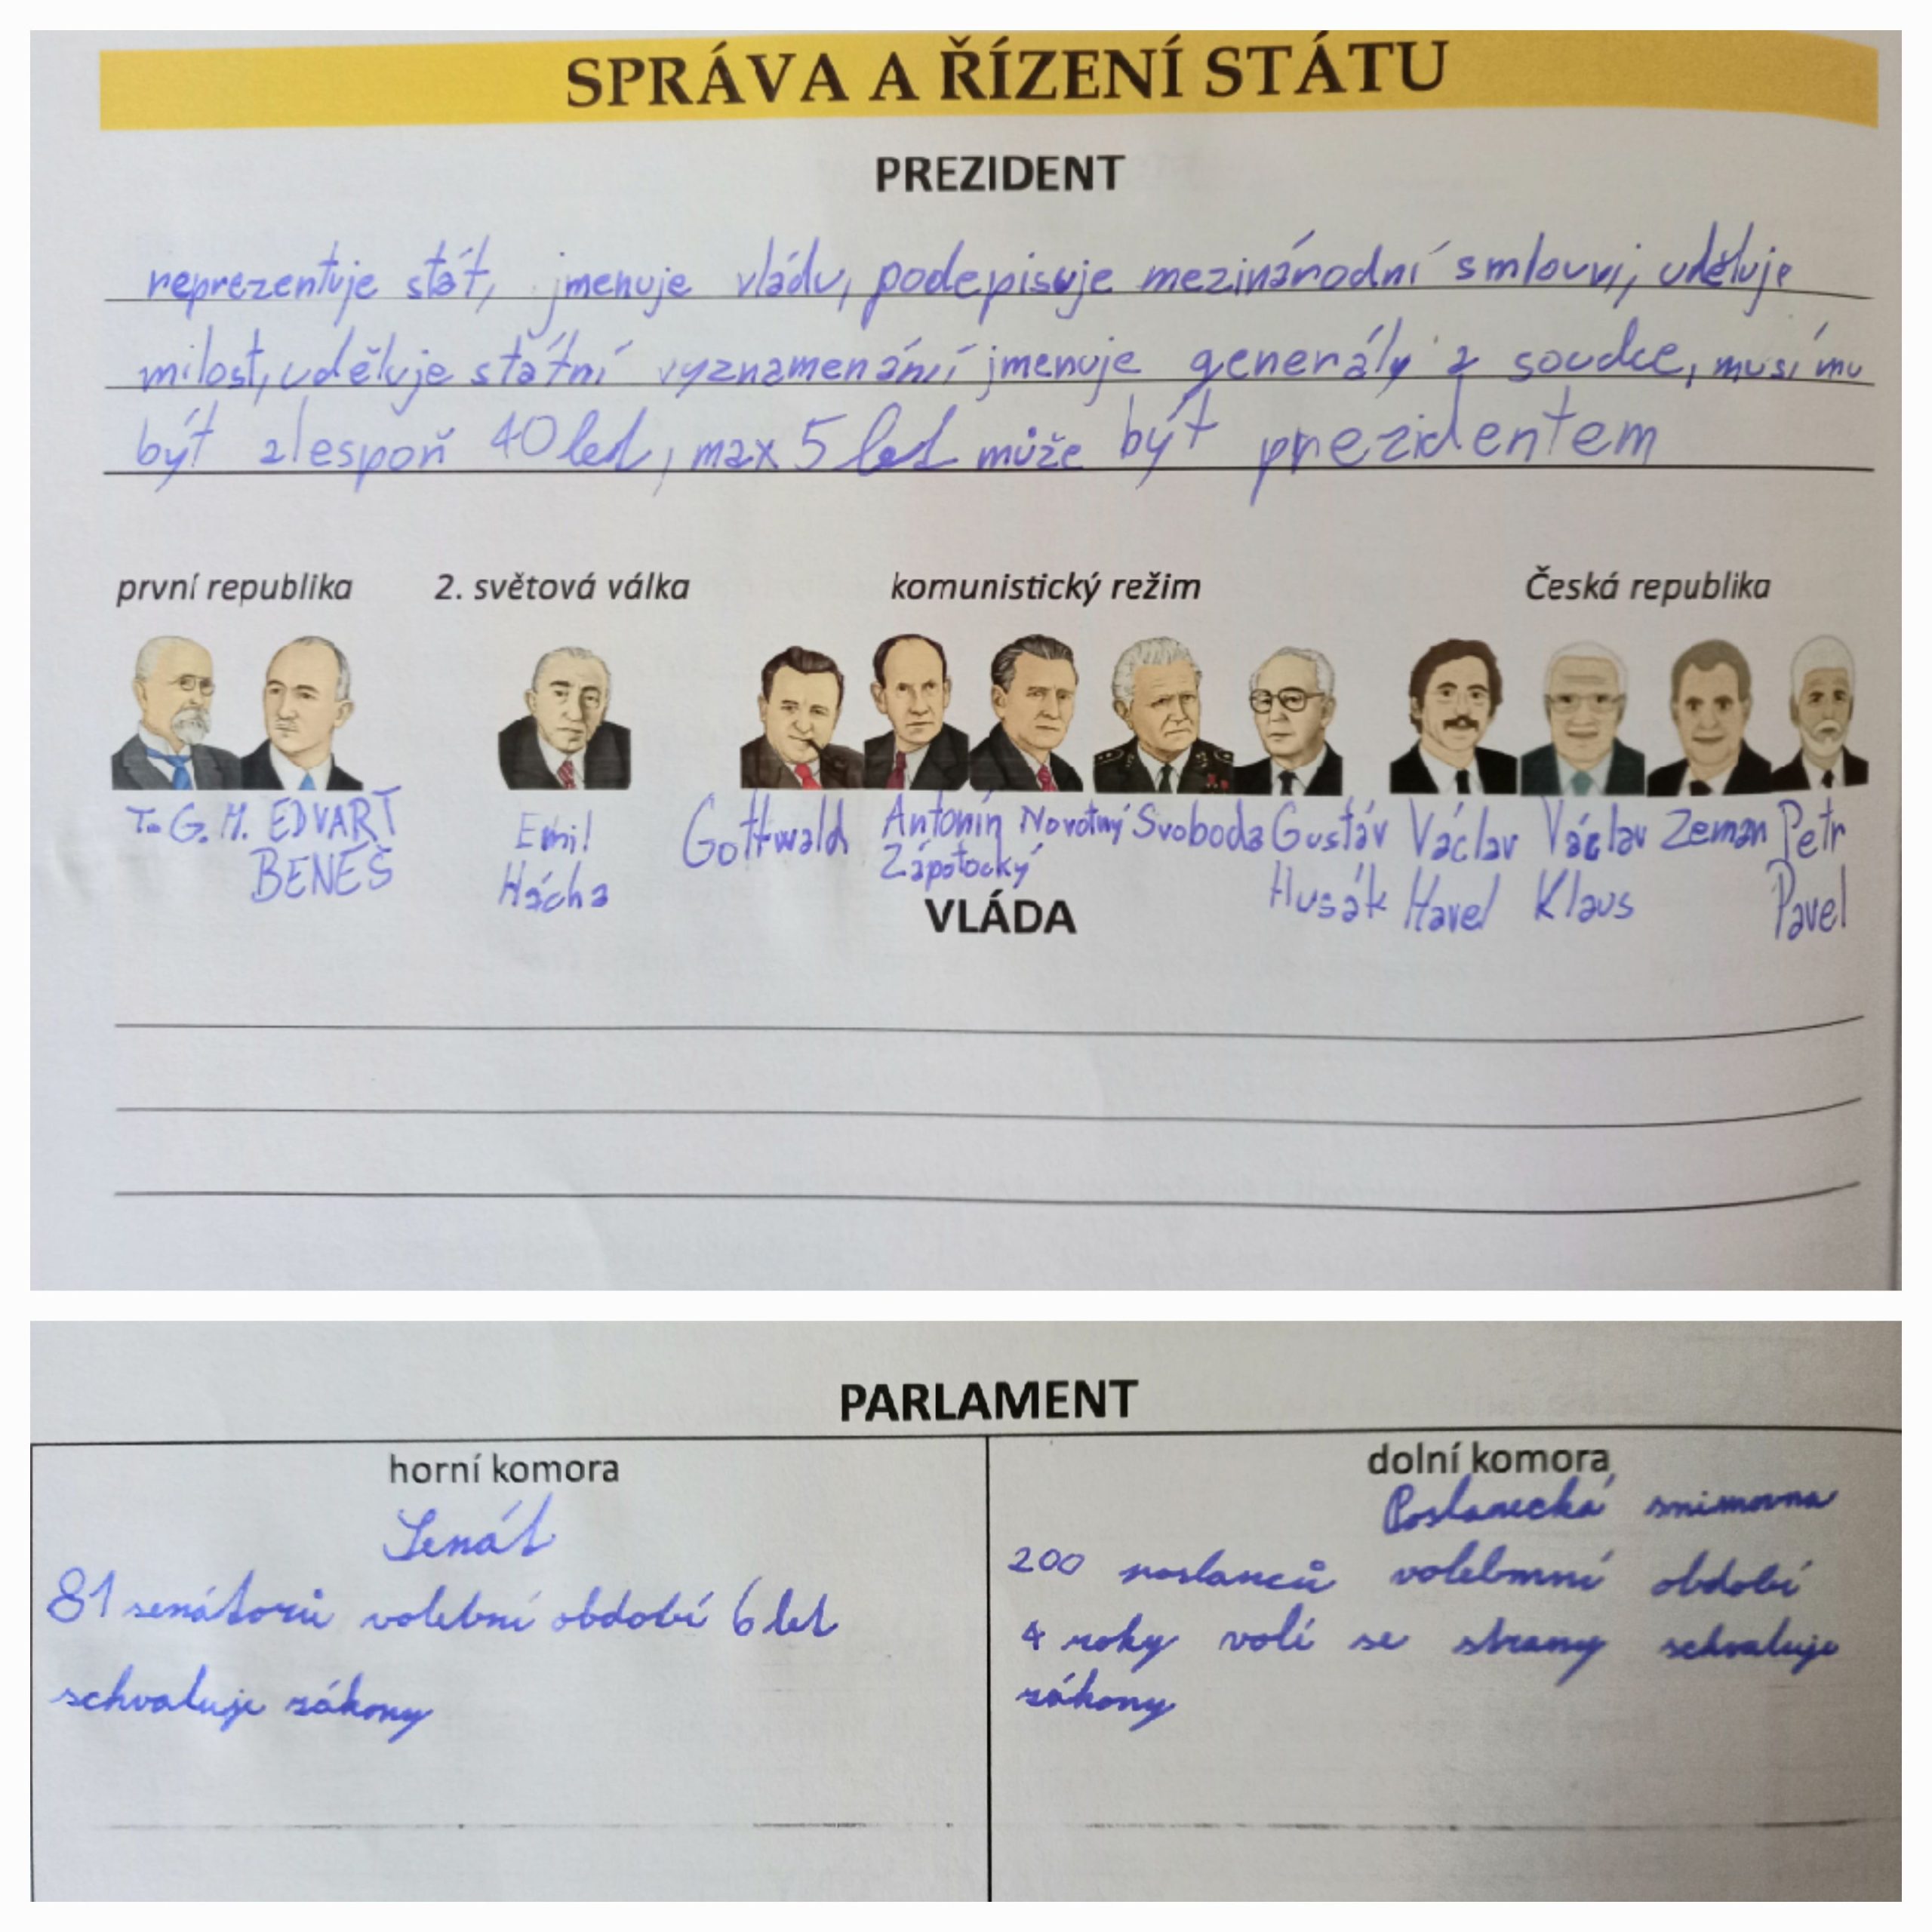 SPRÁVA A ŘÍZENÍ STÁTU
PREZIDENT
reprezentuje stát, jmenuje vládu, podepisuje mezinárodní smlouvy, uděluje
milost, uděluje státní vyznamenání jmenuje generály a soudce, musí mu
být alespoň 40 let, max 5 let může být prezidentem
první republika 2. světová válka komunistický režim Česká republika
T. G. M. EDVART BENEŠ Emil Hácha Gottwald Antonín Zápotocký Novotný Svoboda Gustáv Husák Václav Havel Václav Klaus Zeman Petr Pavel
VLÁDA
PARLAMENT
horní komora
Senát
81 senátorů volební období 6 let
schvaluje zákony
dolní komora
Poslanecká snimovna
200 poslanců volebnní období
4 roky volí se strany schvaluje
zákony